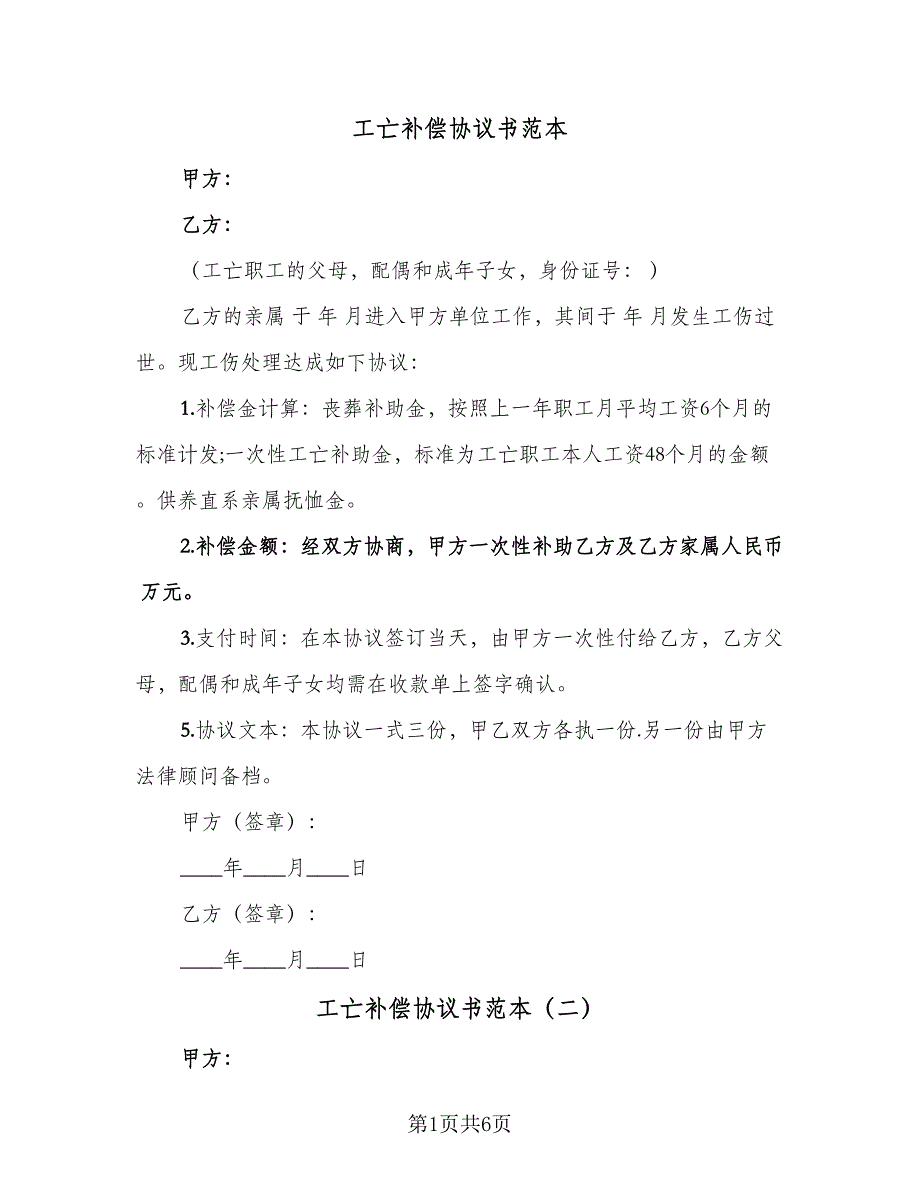 工亡补偿协议书范本
甲方：
乙方：
（工亡职工的父母，配偶和成年子女，身份证号： ）
乙方的亲属 于 年 月进入甲方单位工作，其间于 年 月发生工伤过
世。现工伤处理达成如下协议：
1.补偿金计算：丧葬补助金，按照上一年职工月平均工资6个月的
标准计发;一次性工亡补助金，标准为工亡职工本人工资48个月的金额
。供养直系亲属抚恤金。
2.补偿金额：经双方协商，甲方一次性补助乙方及乙方家属人民币
万元。
3.支付时间：在本协议签订当天，由甲方一次性付给乙方，乙方父
母，配偶和成年子女均需在收款单上签字确认。
5.协议文本：本协议一式三份，甲乙双方各执一份.另一份由甲方
法律顾问备档。
甲方（签章）：
____年____月____日
乙方（签章）：
____年____月____日
工亡补偿协议书范本（二）
甲方：
第1页共6页